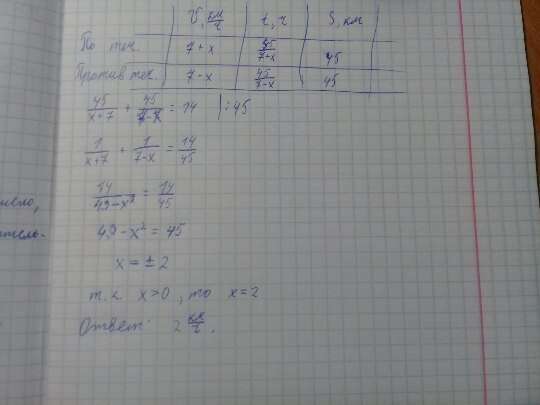 V, км/ч t, ч S, км
По теч. 7+x 45/7+x 45
Против теч. 7-x 45/7-x 45
45/x+7 + 45/7-x = 14 |:45
1/x+7 + 1/7-x = 14/45
14/49-x² = 14/45
49-x² = 45
x = ±2
т.к. x>0, то x=2
Ответ: 2 км/ч.